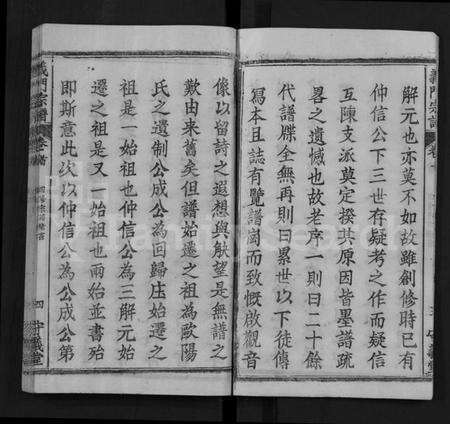 義門宗譜
解元也亦莫不如故雖創修時已有
仲信公下三世存疑考之作而疑信
互陳文派莫定揆其原因皆墨譜疏
畧之遺憾也故老序一則曰二十餘
代譜牒全無再則曰累世以下徒傳
寫本且誌有覽譜崗而致慨啟觀音
像以留詩之遐想與觖望是無譜之
歎由來舊矣但譜始遷之祖為歐陽
氏之遺制公成公為回歸庄始遷之
祖是一始祖也仲信公為三解元始
遷之祖是又一始祖也兩始並書殆
即斯意此次以仲信公為公成公第
義門宗譜
四